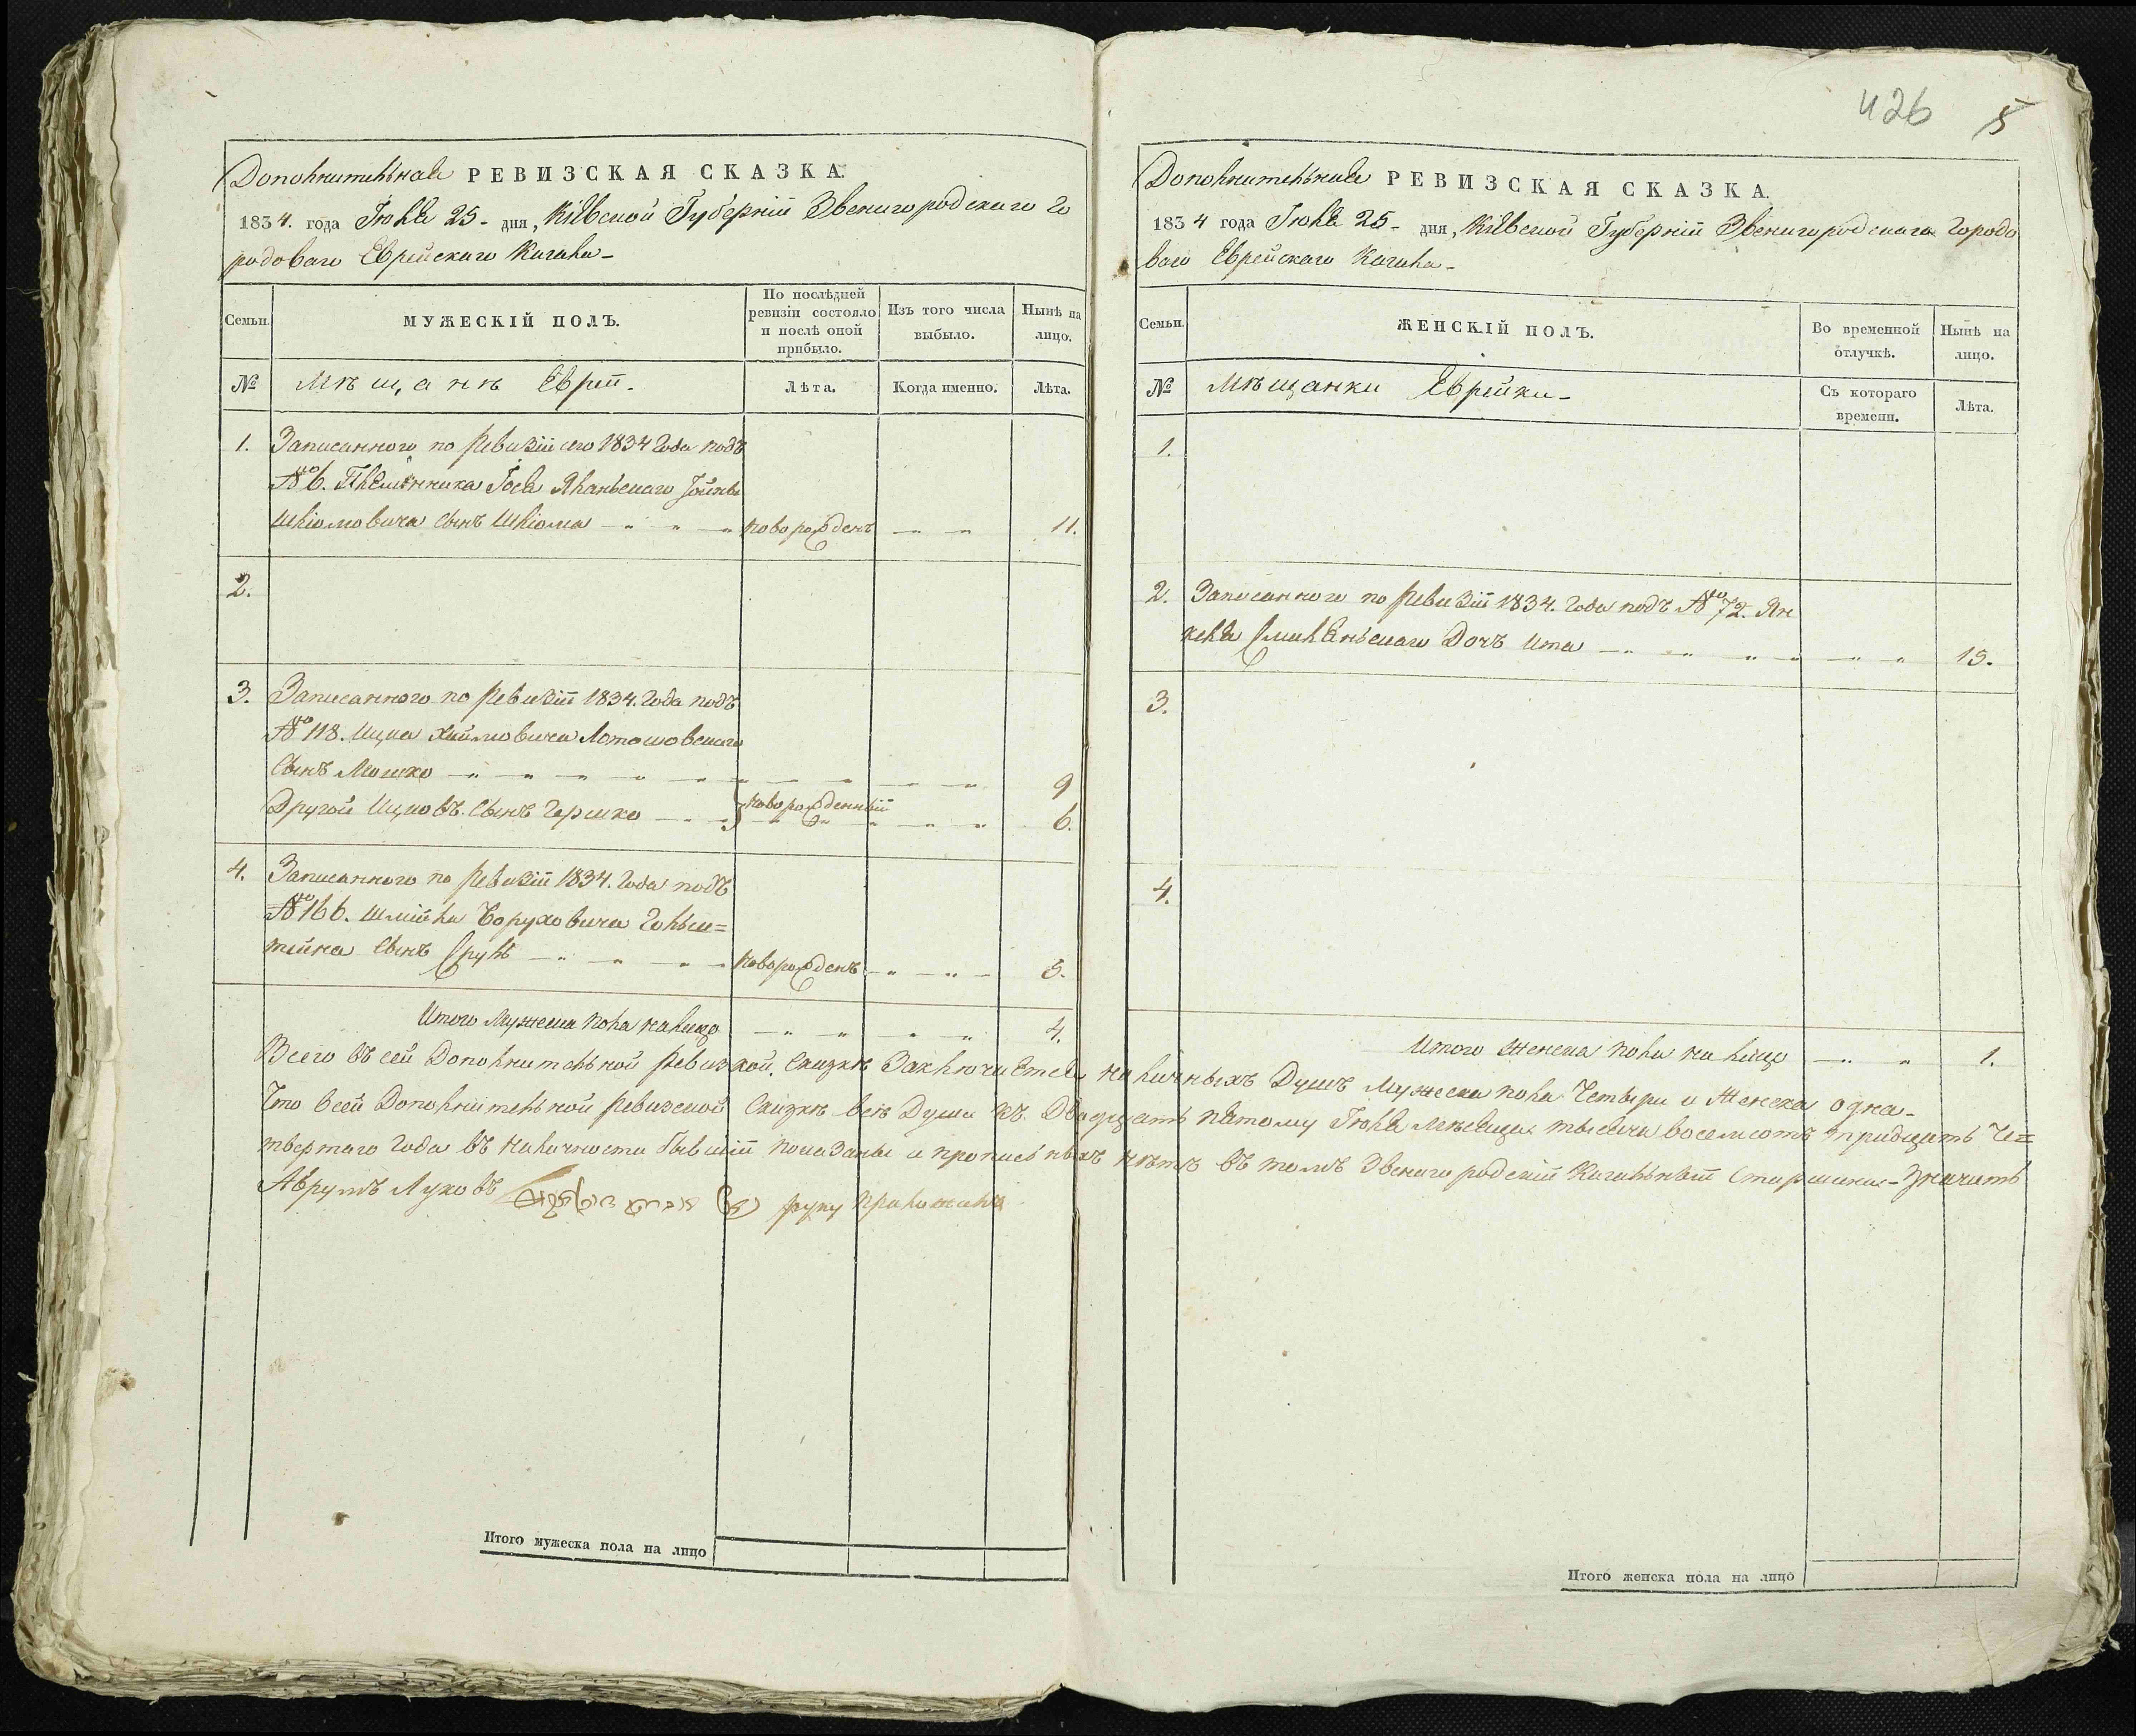 426 5
Дополнительная РЕВИЗСКАЯ СКАЗКА.
1834. года Іюля 25 - дня, Кіевской Губерніи Звенигородскаго Го
родоваго Еврейскаго Кагала -
Семьи.
МУЖЕСКІЙ ПОЛЪ.
По послѣдней ревизіи состояло и послѣ оной прибыло.
Изъ того числа выбыло.
Нынѣ на лицо.
№ Мѣщанѣ Евреи. Лѣта. Когда именно. Лѣта.
1. Записанного по Ревизіи сего 1834 Года подъ
№ 6. Племянника Іося Яланьскаго
Шліомовича Сынъ Шліома новорожденъ 11.
2.
3. Записанного по Ревизіи 1834. Года подъ
№ 118. Ицка Хаймовича
Сынъ Мошко 9
Другой Ицковъ Сынъ Гершко новорожденніи 6.
4. Записанного по Ревизіи 1834. Года подъ
№ 166. Шмійла Боруховича Гольш=
тейна Сынъ Сруль новорожденъ 5.
Итого Мужеска пола налицо 4.
Дополнительная РЕВИЗСКАЯ СКАЗКА.
1834 года Іюля 25 - дня, Кіевской Губерніи Звенигородскаго Городо
ваго Еврейскаго Кагала -
Семьи.
ЖЕНСКІЙ ПОЛЪ.
Во временной отлучкѣ.
Нынѣ на лицо.
№ Мѣщанки Еврейки - Съ котораго времени. Лѣта.
1.
2. Записанного по Ревизіи 1834. Года подъ № 72. Ян
келя Смиляньскаго Дочъ Ита 15.
3.
4.
Итого Женска пола налицо 1.
Всего въ сей Дополнительной Ревизкой Сказкѣ Заключается наличныхъ Душъ Мужеска пола Четыри и Женска одна -
Что всей Дополнительной Ревизской Сказкѣ всѣ Души къ Двадцать пятому Іюля Мѣсяца тысяча восемсотъ тридцать Че=
твертаго Года въ наличности бывшіи показаны и прописныхъ нѣтъ въ томъ Звенигородскій Кагальный Старшина - Значитъ
Аврумъ Луковъ руку приложилъ
Итого мужеска пола на лицо
Итого женска пола на лицо